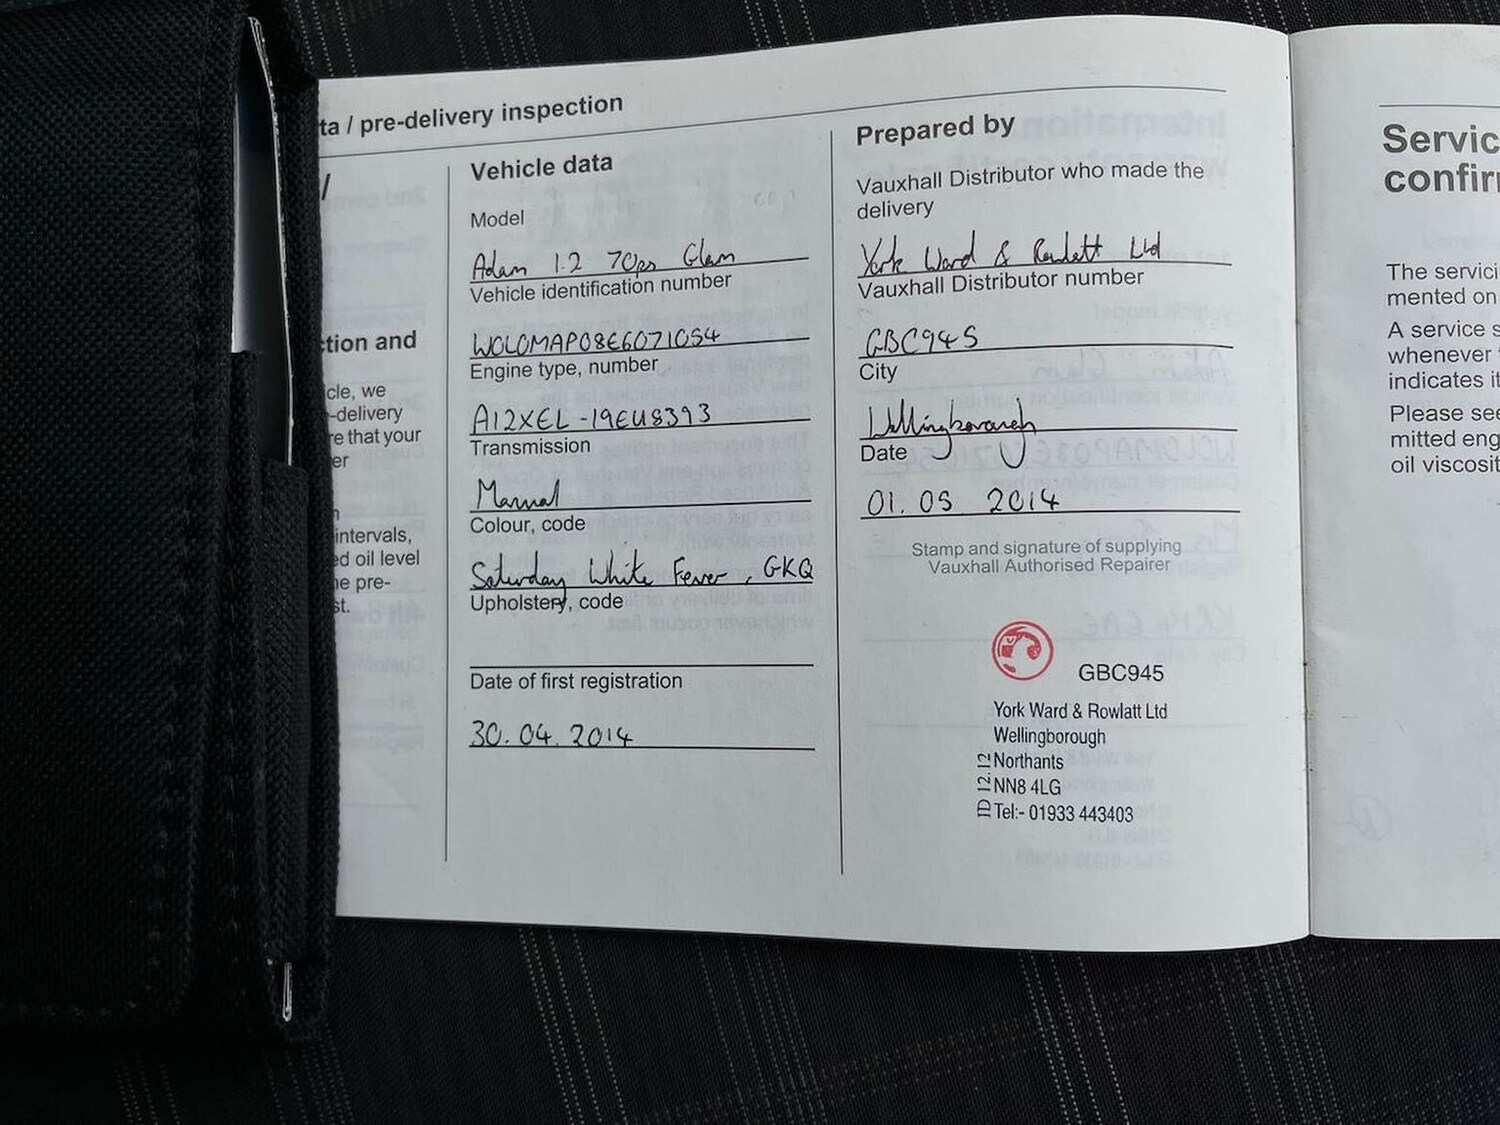 ta / pre-delivery inspection
/
ction and
cle, we
-delivery
re that your
er
intervals,
ed oil level
he pre-
st.
Vehicle data
Model
Adam 1.2 70ps Glam
Vehicle identification number
W0L0MAP08E6071054
Engine type, number
A12XEL - 19EU8393
Transmission
Manual
Colour, code
Saturday White Fever, GKQ
Upholstery, code
Date of first registration
30. 04. 2014
Prepared by
Vauxhall Distributor who made the
delivery
York Ward & Rowlatt Ltd
Vauxhall Distributor number
GBC945
City
Wellingborough
Date
01. 05 2014
Stamp and signature of supplying
Vauxhall Authorised Repairer
GBC945
York Ward & Rowlatt Ltd
Wellingborough
Northants
NN8 4LG
Tel:- 01933 443403
ID 12.12
Servic
confir
The servici
mented on
A service s
whenever
indicates it
Please see
mitted eng
oil viscosit